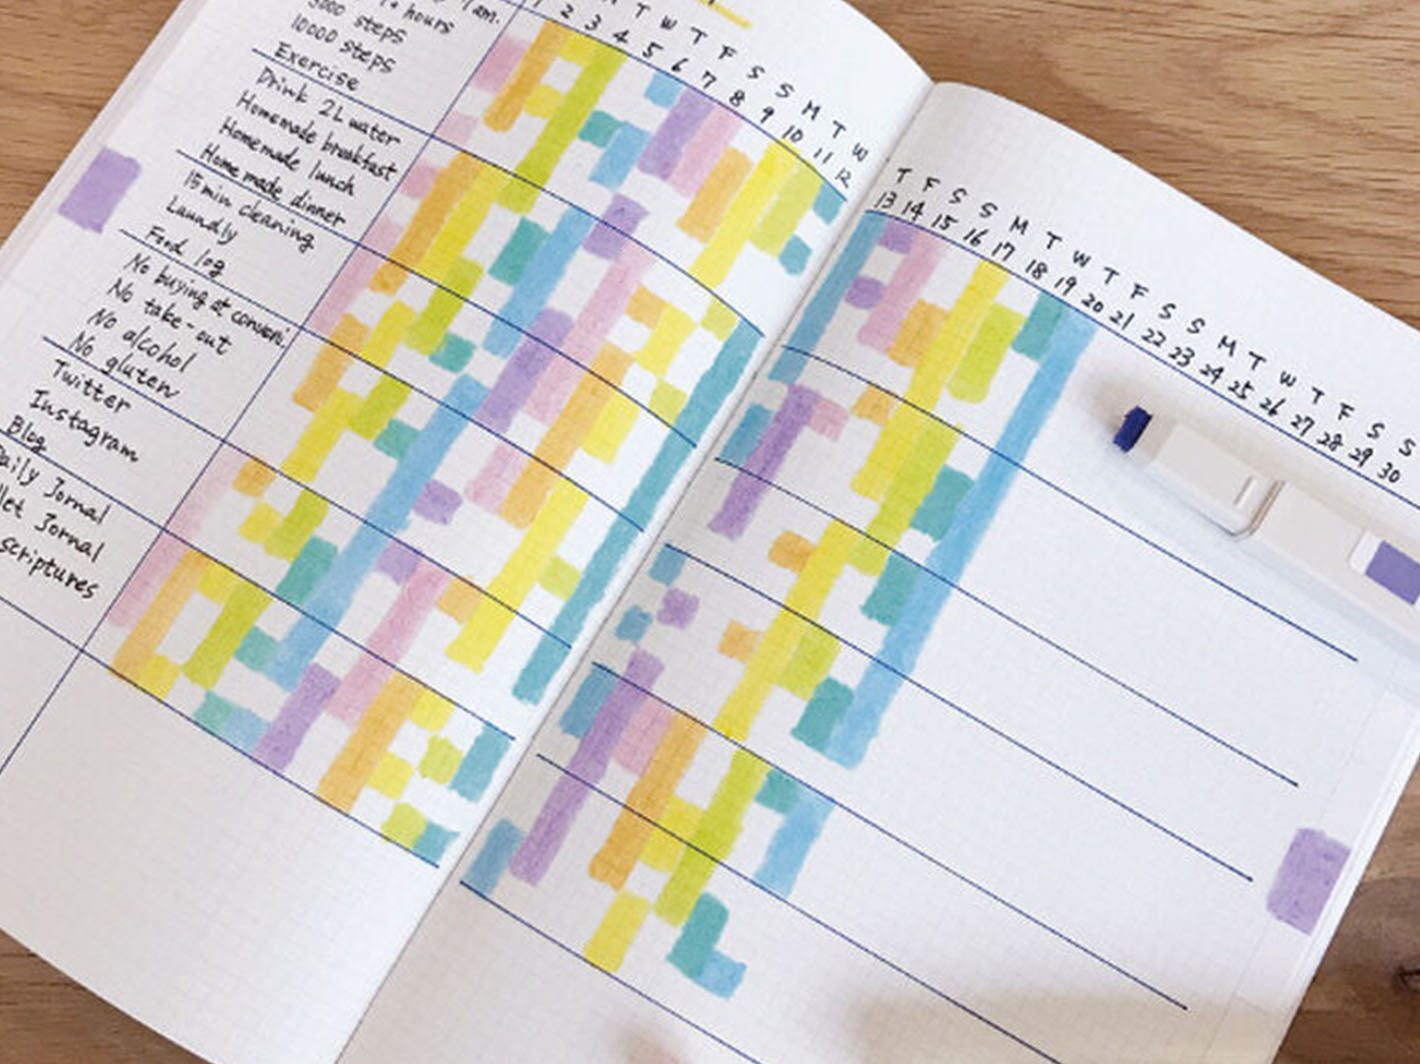 am.
hours
5000 steps
10000 steps
Exercise
Drink 2L water
Homemade breakfast
Homemade lunch
Home made dinner
15 min cleaning
Laundly
Food log
No buying at conveni.
No take-out
No alcohol
No gluten
Twitter
Instagram
Blog
Daily Jornal
llet Jornal
scriptures
M T W T F S S M T W
1 2 3 4 5 6 7 8 9 10 11 12
T F S S M T W T F S S M T W T F S S
13 14 15 16 17 18 19 20 21 22 23 24 25 26 27 28 29 30